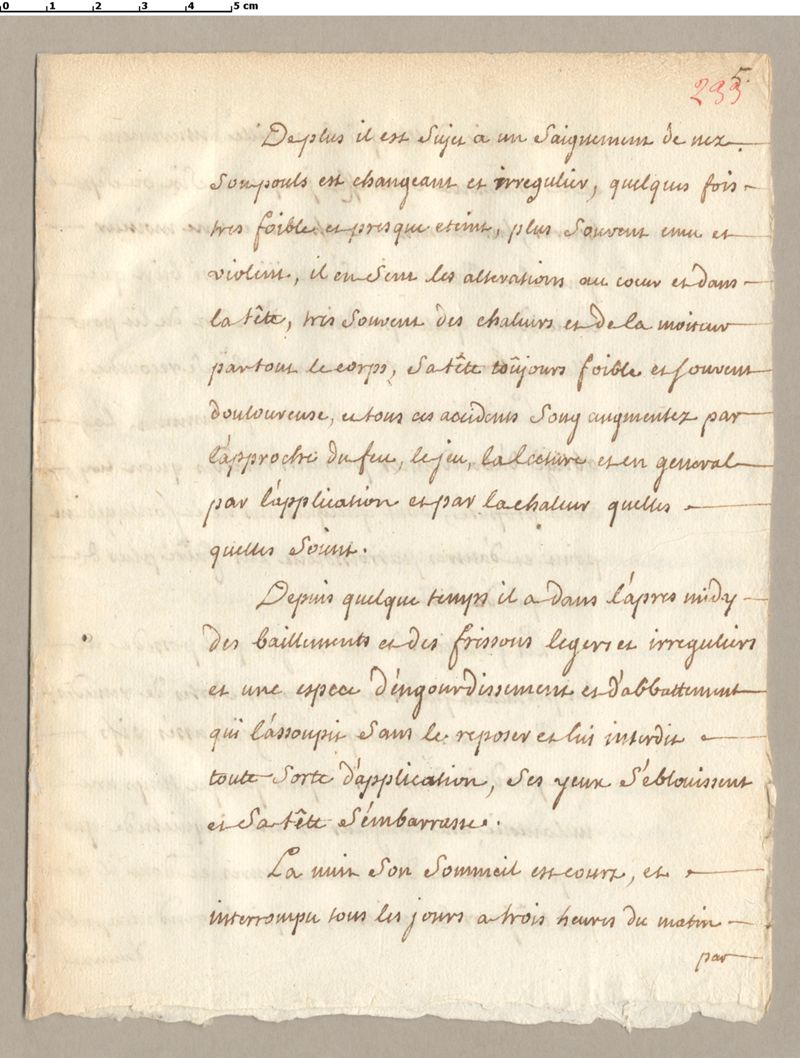 0 1 2 3 4 5 cm
5.
233
De plus il est Sujet a un Saignement de nez.
Son pouls est changeant et irregulier, quelques fois
tres foible et presque eteint, plus Souvent emu et
violent, il en Sent les alterations au coeur et dans
la tête, tres Souvent des chaleurs et de la moiteur
par tout le corps, Sa tête toûjours foible et souvent
douloureuse, et tous ces accidents Song augmentez par
l'approche du feu, le jeu, la lecture et en general
par l'application et par la chaleur quelles
quelles Soient.
Depuis quelque temps il a dans l'apres midy
des baillements et des frissons legers et irreguliers
et une espece d'éngourdissement et d'abbattement
qui l'assoupit Sans le reposer et lui interdit
toute Sorte d'application, Ses yeux S'eblouissent
et Sa tête S'embarrasse.
La nuit Son Sommeil est court, et
interrompu tous les jours a trois heures du matin
par